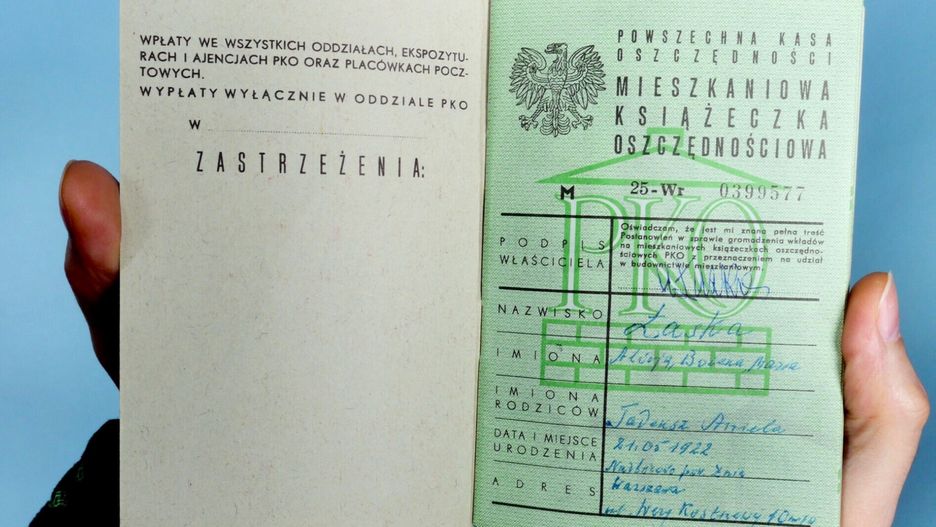 WPŁATY WE WSZYSTKICH ODDZIAŁACH, EKSPOZYTU-
RACH I AJENCJACH PKO ORAZ PLACÓWKACH POCZ-
TOWYCH.
WYPŁATY WYŁĄCZNIE W ODDZIALE PKO
W
ZASTRZEŻENIA:
POWSZECHNA KASA
OSZCZĘDNOŚCI
MIESZKANIOWA
KSIĄŻECZKA
OSZCZĘDNOŚCIOWA
M 25-Wr 0399577
PKO
PODPIS
WŁAŚCICIELA
Oświadczam, że jest mi znana pełna treść
Postanowień w sprawie gromadzenia wkładów
na mieszkaniowych książeczkach oszczędno-
ściowych PKO przeznaczeniem na udział
w budownictwie mieszkaniowym
NAZWISKO Łaska
IMIONA Alicja, Bożena Maria
IMIONA
RODZICÓW
Tadeusz Aniela
DATA I MIEJSCE
URODZENIA
21.05.1922
ADRES
Warszawa